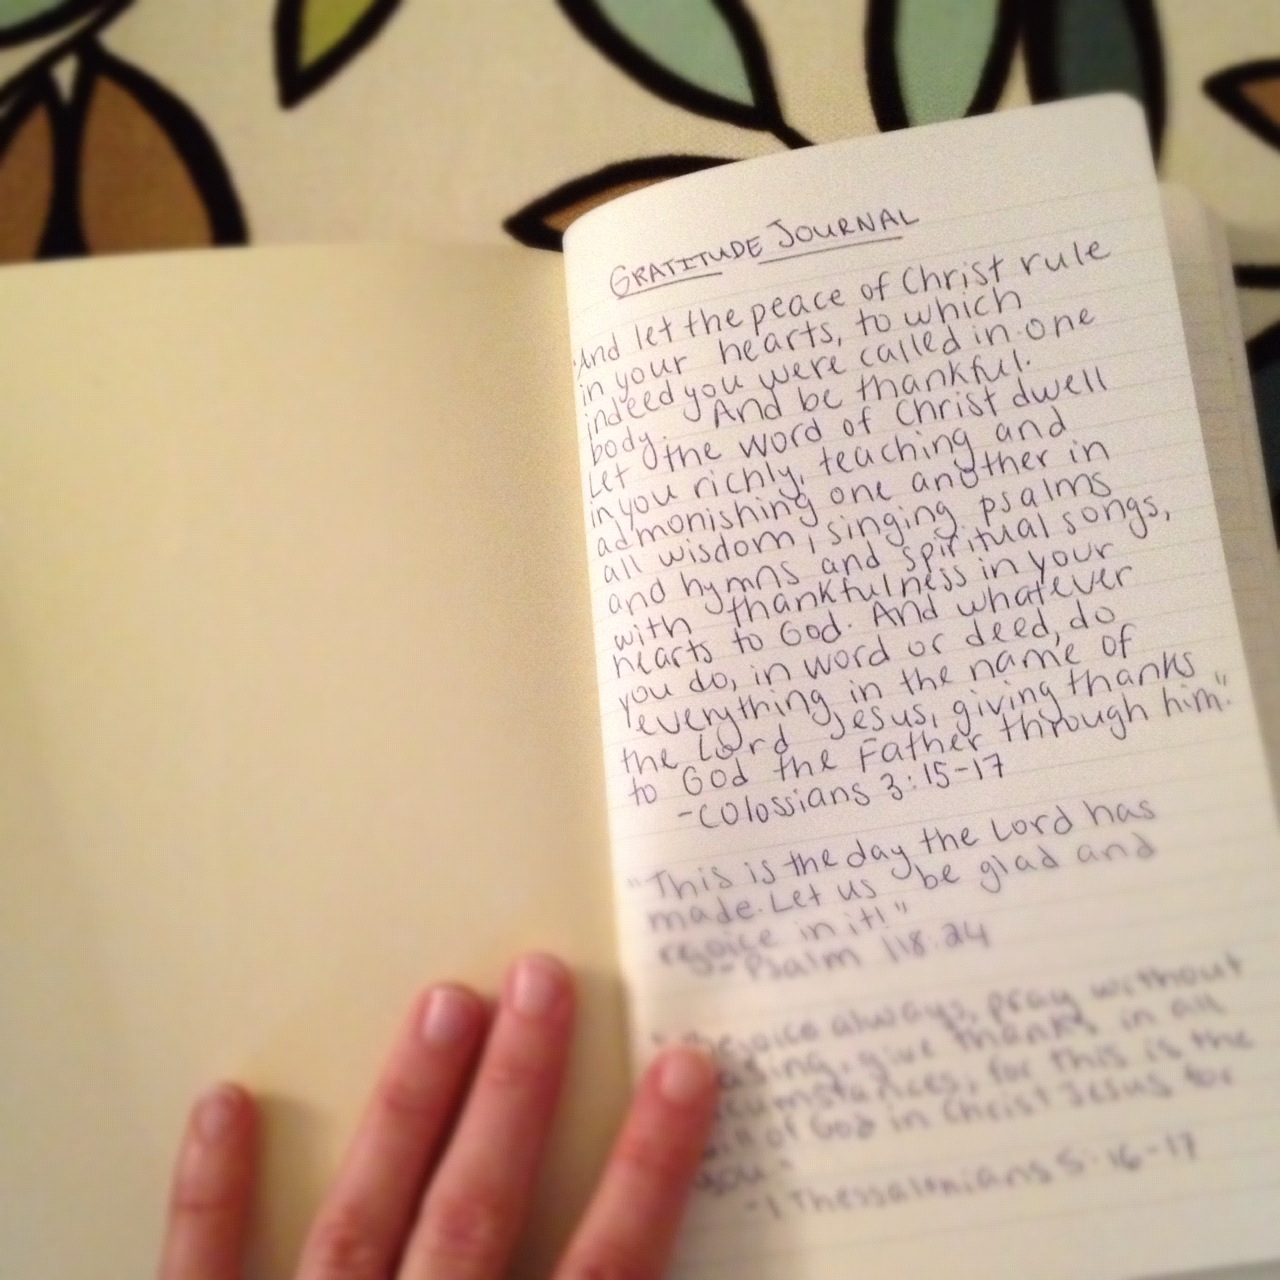 GRATITUDE JOURNAL
"And let the peace of Christ rule
in your hearts, to which
indeed you were called in one
body. And be thankful.
Let the word of Christ dwell
in you richly, teaching and
admonishing one another in
all wisdom, singing psalms
and hymns and spiritual songs,
with thankfulness in your
hearts to God. And whatever
you do, in word or deed, do
everything in the name of
the Lord Jesus, giving thanks
to God the Father through him."
-Colossians 3:15-17
"This is the day the Lord has
made. Let us be glad and
rejoice in it!"
-Psalm 118:24
"Rejoice always, pray without
give thanks in all
for this is the
of God in Christ Jesus for
you."
-1 Thessalonians 5:16-17